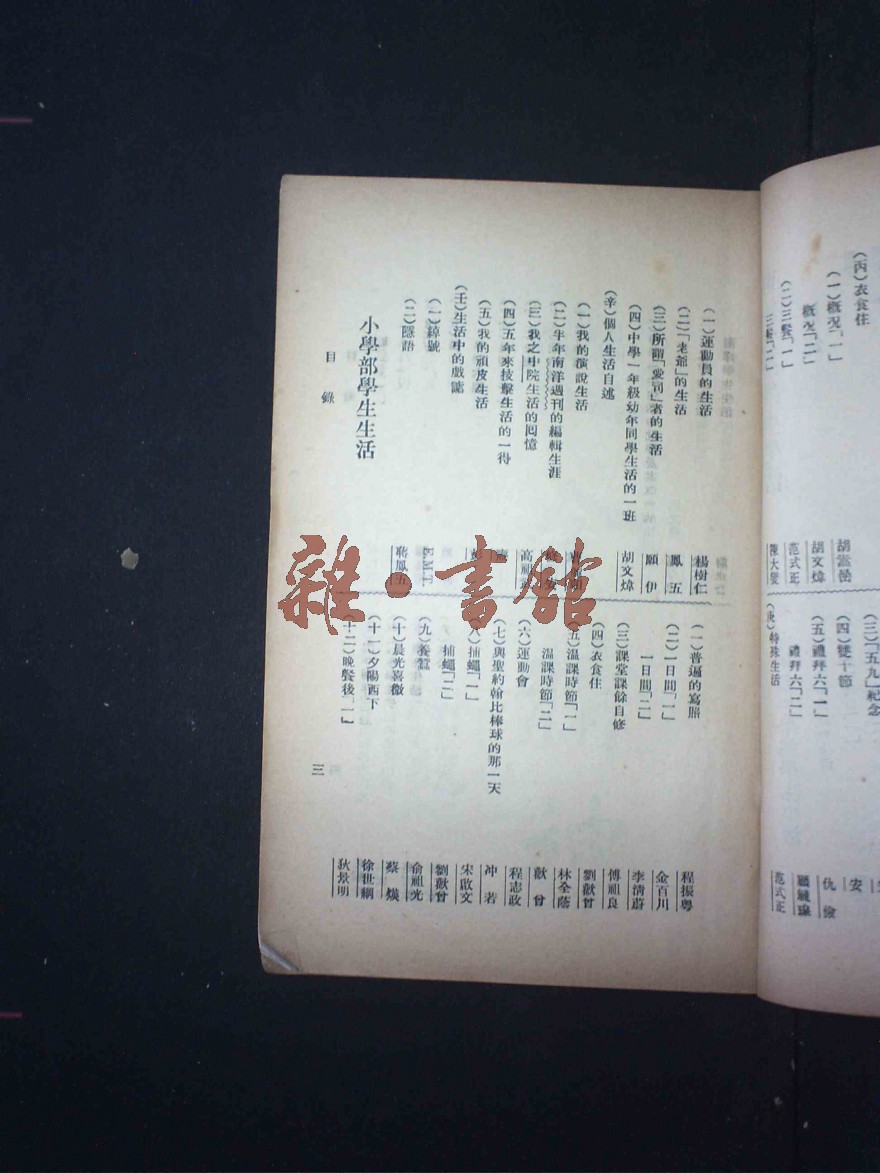 (丙)衣食住
(一)概况「一」
概况「二」
胡文煒
(二)三餐「一」
范式正
三餐「二」
陳大燮
(三)「五九」紀念
(四)雙十節
安
(五)禮拜六「一」
仇儉
禮拜六「二」
(庚)特殊生活
范式正
(一)運動員的生活
楊樹仁
(二)「老爺」的生活
鳳五
(三)所謂「愛司」者的生活
顧伊
(四)中學一年級幼年同學生活的一班
胡文煒
(辛)個人生活自述
(一)我的演說生活
(二)半年南洋週刊的編輯生涯
(三)我之中院生活的囘憶
高祖
(四)五年來技擊生活的一得
(五)我的頑皮生活
(壬)生活中的戲謔
(一)綽號
E.M.T.
(二)隱語
蔣鳳五
小學部學生生活
(一)普遍的寫照
程振粵
(二)一日間「一」
金百川
一日間「二」
李清蔚
(三)課堂課餘自修
傅祖良
(四)衣食住
劉歡曾
(五)溫課時節「一」
林全蔭
溫課時節「二」
歡曾
(六)運動會
程志政
(七)與聖約翰比棒球的那一天
冲若
(八)捕蠅「一」
宋啟文
捕蠅「二」
劉歡曾
(九)養蠶
俞祖光
(十)晨光喜微
蔡煐
(十一)夕陽西下
徐世綱
(十二)晚餐後「一」
狄景明
目錄
三
雜·書館